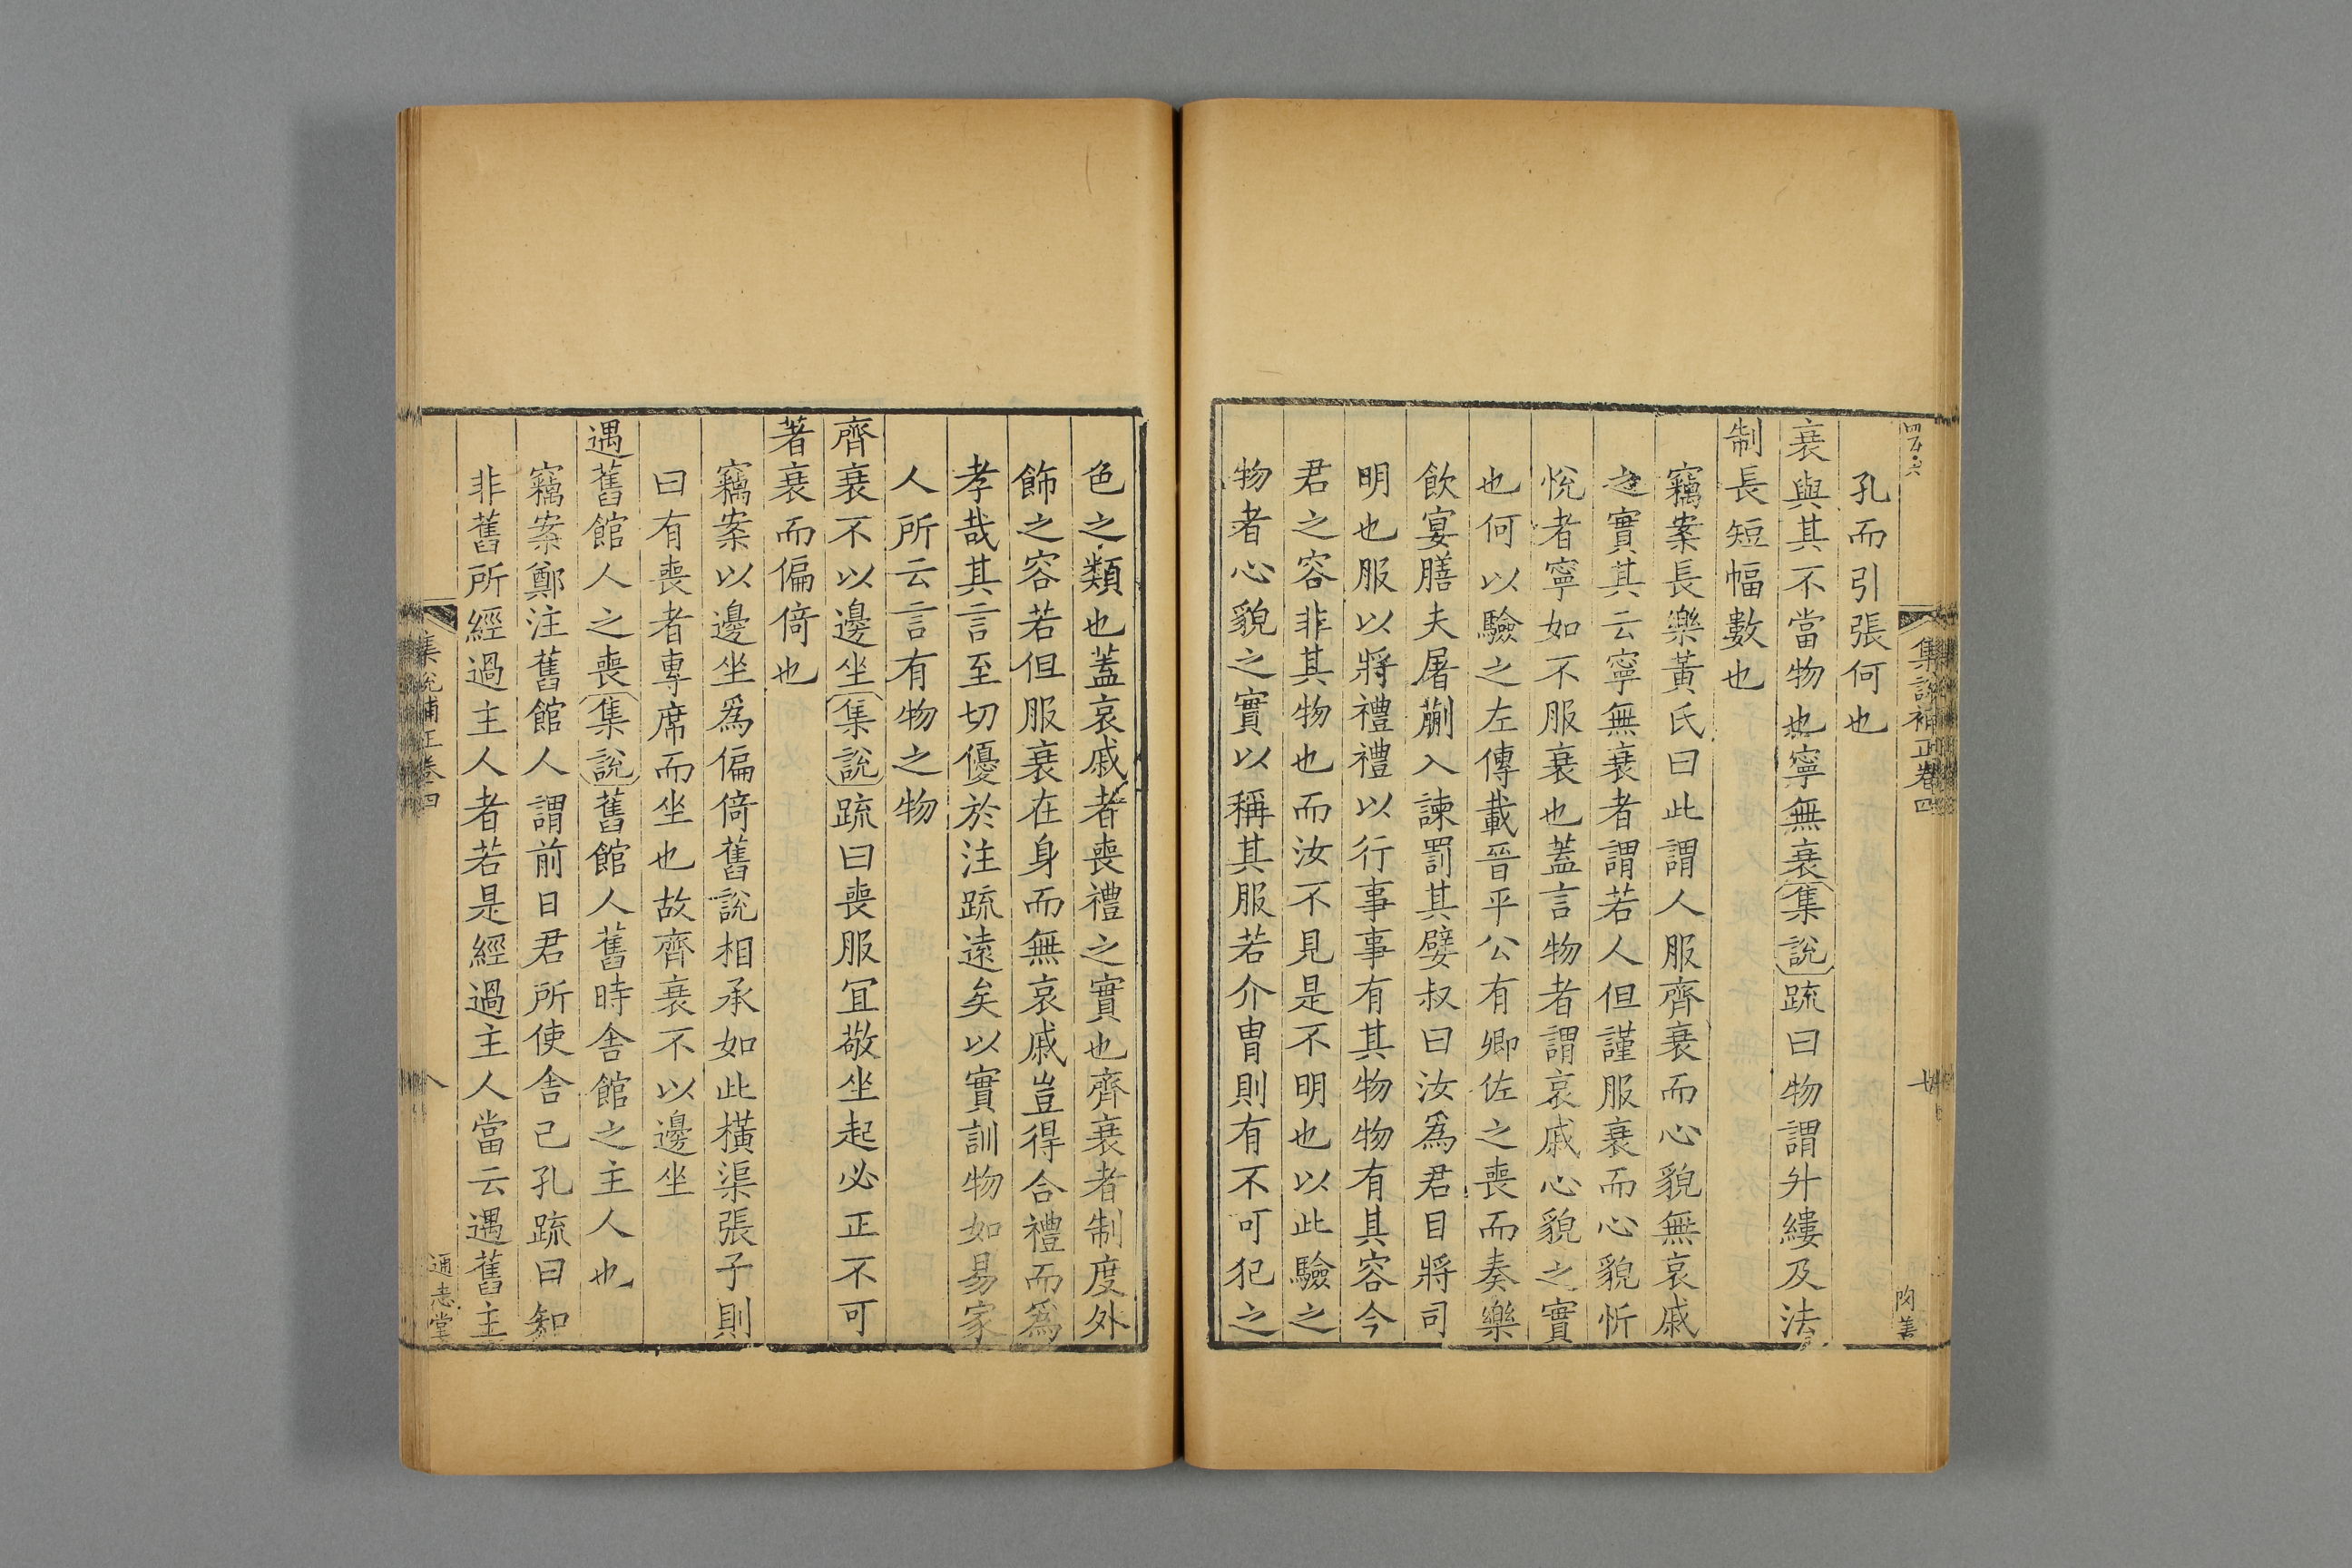 孔而引張何也
衰與其不當物也寧無衰集說疏曰物謂升縷及法
制長短幅數也
竊案長樂黃氏曰此謂人服齊衰而心貌無哀戚
之實其云寧無衰者謂若人但謹服衰而心貌忻
悅者寧如不服衰也蓋言物者謂哀戚心貌之實
也何以驗之左傳載晉平公有卿佐之喪而奏樂
飲宴膳夫屠蒯入諫罰其嬖叔曰汝爲君目將司
明也服以將禮禮以行事事有其物物有其容今
君之容非其物也而汝不見是不明也以此驗之
物者心貌之實以稱其服若介胄則有不可犯之
集說補正卷四
色之類也蓋哀戚者喪禮之實也齊衰者制度外
飾之容若但服衰在身而無哀戚豈得合禮而爲
孝哉其言至切優於注疏遠矣以實訓物如易家
人所云言有物之物
齊衰不以邊坐集說疏曰喪服宜敬坐起必正不可
著衰而偏倚也
竊案以邊坐爲偏倚舊說相承如此橫渠張子則
曰有喪者專席而坐也故齊衰不以邊坐
遇舊館人之喪集說舊館人舊時舍館之主人也
竊案鄭注舊館人謂前日君所使舍己孔疏曰知
非舊所經過主人者若是經過主人當云遇舊主
集說補正卷四
八
通志堂